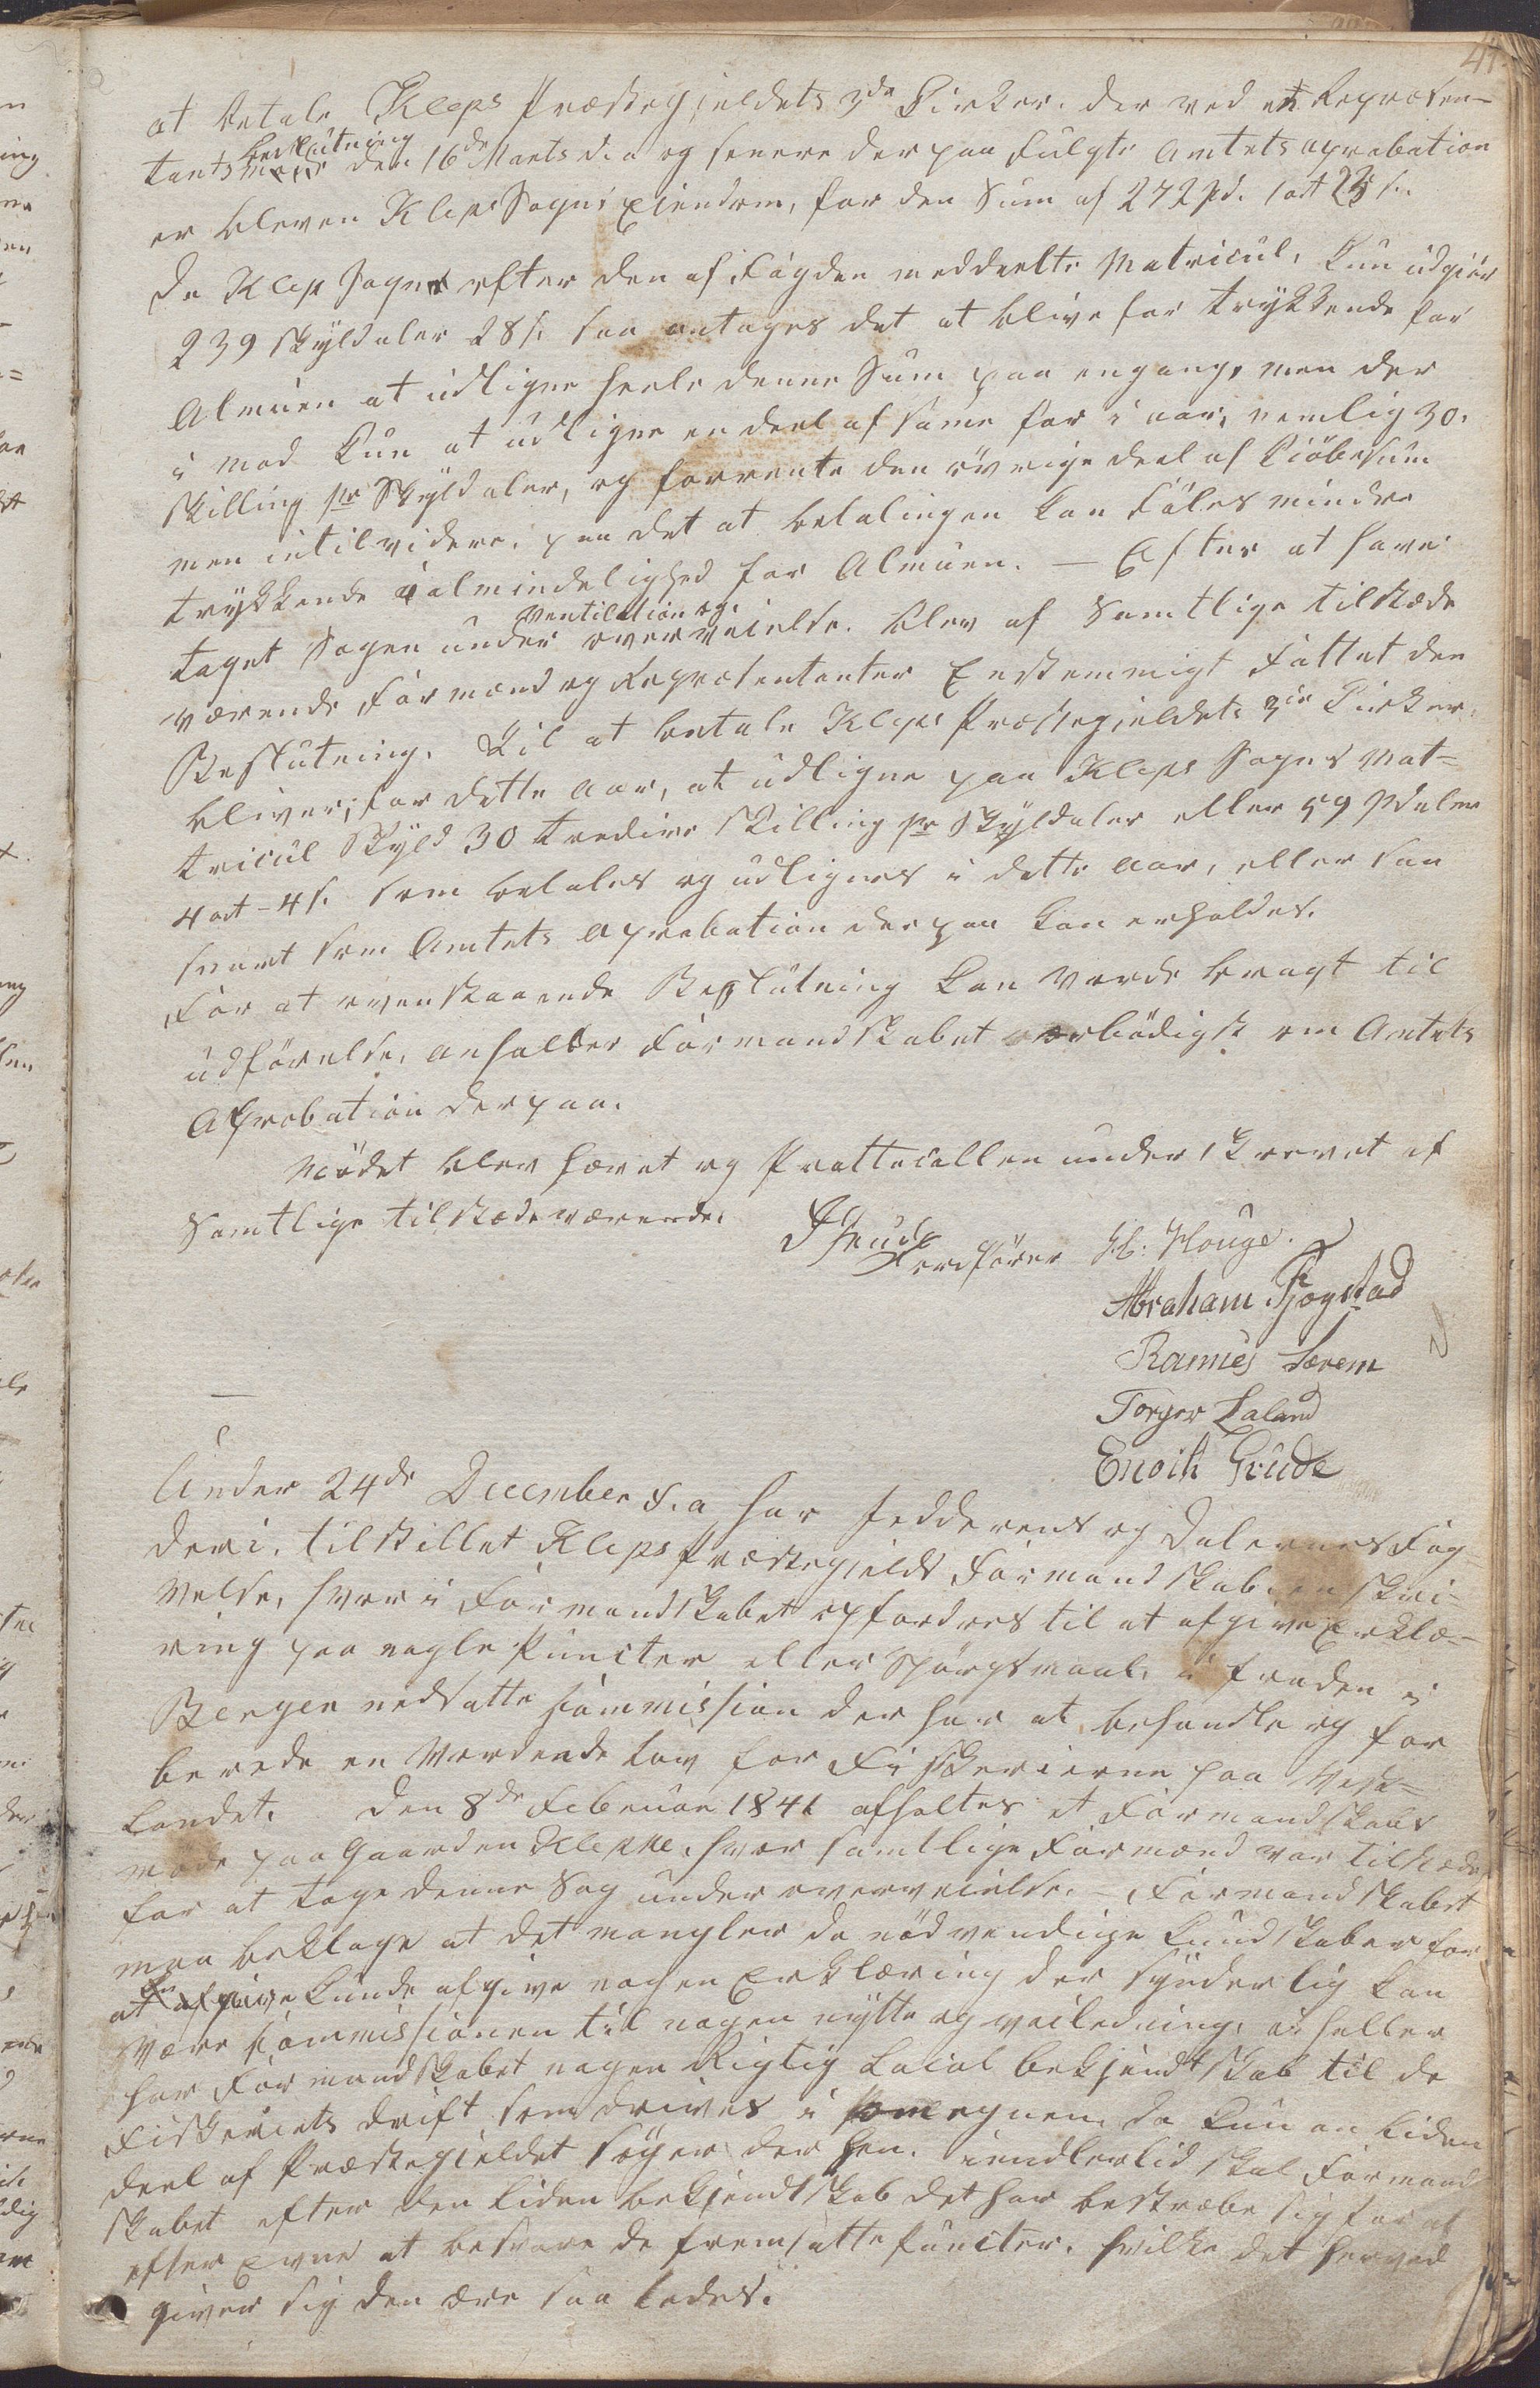 41.
at betale Kleps Præstegjeldets 3de Kirker, der ved et Repræsen-
tants beslutning den 16de Marts d. a og senere der paa fulgte Amtets aprobation
er bleven Kleps Sogns Eiendom, for den Sum af 272 spd. 1 ort 23 s.
Da Klep Sogn efter den af Fogden meddeelte Matricul, kun udgiør
239 Skyldaler 28 s. saa antages det at blive for trykkende for
Almuen at udligne heele denne Sum paa engang, men der
i mod kun at udligne en deel af same for i aar, nemlig 30.
skilling pr Skyldaler, og forrente den övrige deel af Kiöbesum
men intil videre, paa det at betalingen kan föles mindre
trykkende i almindelighed for Almuen. — Efter at have
taget Sagen under Ventilation og overveielse, blev af Samtlige tilstæde
værende Formænd og Repræsentanter Enstemmigt fattet den
Beslutning. Til at betale Kleps Præstegjeldets 3de Kirker
bliver, for dette Aar, at udligne paa Kleps Sogns Mat-
tricul Skyld 30 tredive Skilling pr Skyldaler eller 59 Spdaler
4 ort - 4 s. som betales og udlignes i dette aar, eller saa
snart som Amtets Aprobation derpaa kan erholdes.
For at ovenstaaende Beslutning kan vorde bragt til
udförelse, anholder Formandskabet ærbödigst om Amtets
Aprobation derpaa.
Mödet blev hævet og Prottocollen underskrevet af
Samtlige tilstædeværende.
Ordförer
H: Houge.
Abraham Fjogstad
Rasmus Særem
Torger Laland
Enoch Grude
Under 24de December f. a har Jedderens og Dalernes Fog-
deri, tilstillet Kleps Præstegjelds Formandskab en skri-
velse, hvor i Formandskabet opfordres til at afgive Erklæ-
ring paa nogle Puncter eller Spörgsmaal, i fra den i
Bergen nedsatte Commission der har at behandle og for
berede en Vordende Lov for Fiskerierne paa Vest-
Landet. Den 8de Februar 1841 afholtes et Formandskabs
möde paa Gaarden Kleppe, hvor samtlige Formænd var tilstæde
for at tage denne Sag under overveielse. — Formandskabet
maa beklage at det mangler de nödvendige Kundskaber for
at kunde afgive nogen Erklæring der synderlig kan
være Commissionen til nogen nytte og veiledning, ei heller
har Formandskabet nogen Rigtig Local bekjendtskab til de
Fiskeriets Drift som drives i omegnen, da kun en liden
deel af Præstegjeldet söger der hen. imidlertid skal Formand
skabet efter den liden bekjendtskab det har bestræbe sig for at
efter Evne at besvare de fremsatte Puncter, hvilke det herved
giver sig den ære saa ledes.